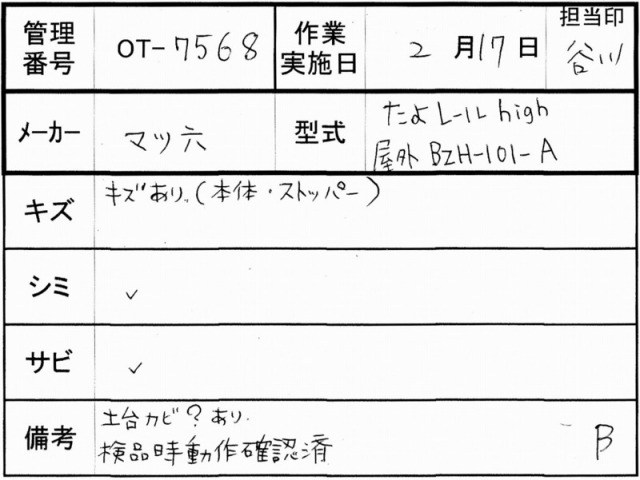 管理番号 OT-7568 作業実施日 2月17日 担当印 谷川
メーカー マツ六 型式 たよレール high
屋外 BZH-101-A
キズ キズあり。(本体・ストッパー)
シミ ✓
サビ ✓
備考 土台カビ?あり.
検品時動作確認済 B